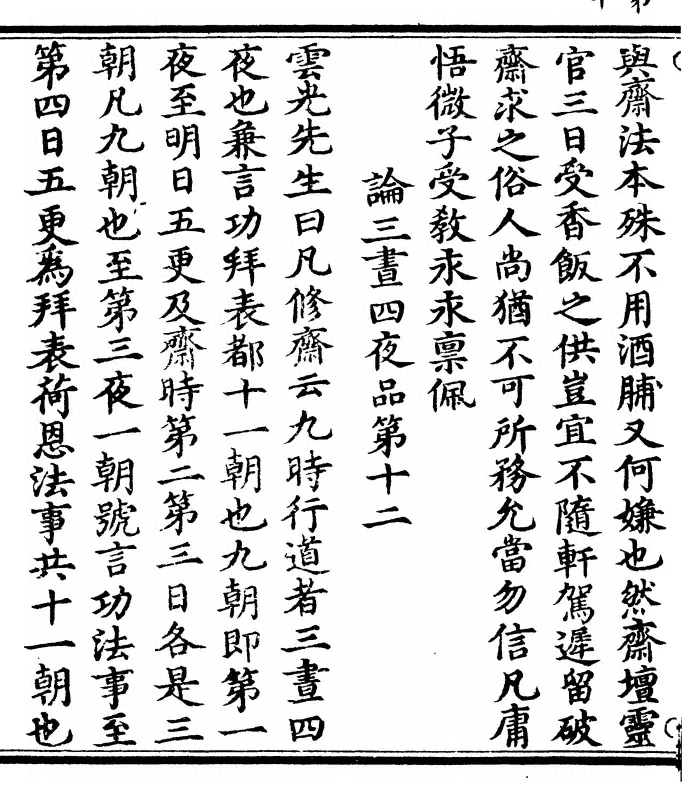 與齋法本殊不用酒脯又何嫌也然齋壇靈
官三日受香飯之供豈宜不隨軒駕遲留破
齋求之俗人尚猶不可所務允當勿信凡庸
悟微子受教永永稟佩
論三晝四夜品第十二
雲光先生曰凡修齋云九時行道者三晝四
夜也兼言功拜表都十一朝也九朝即第一
夜至明日五更及齋時第二第三日各是三
朝凡九朝也至第三夜一朝號言功法事至
第四日五更爲拜表荷恩法事共十一朝也